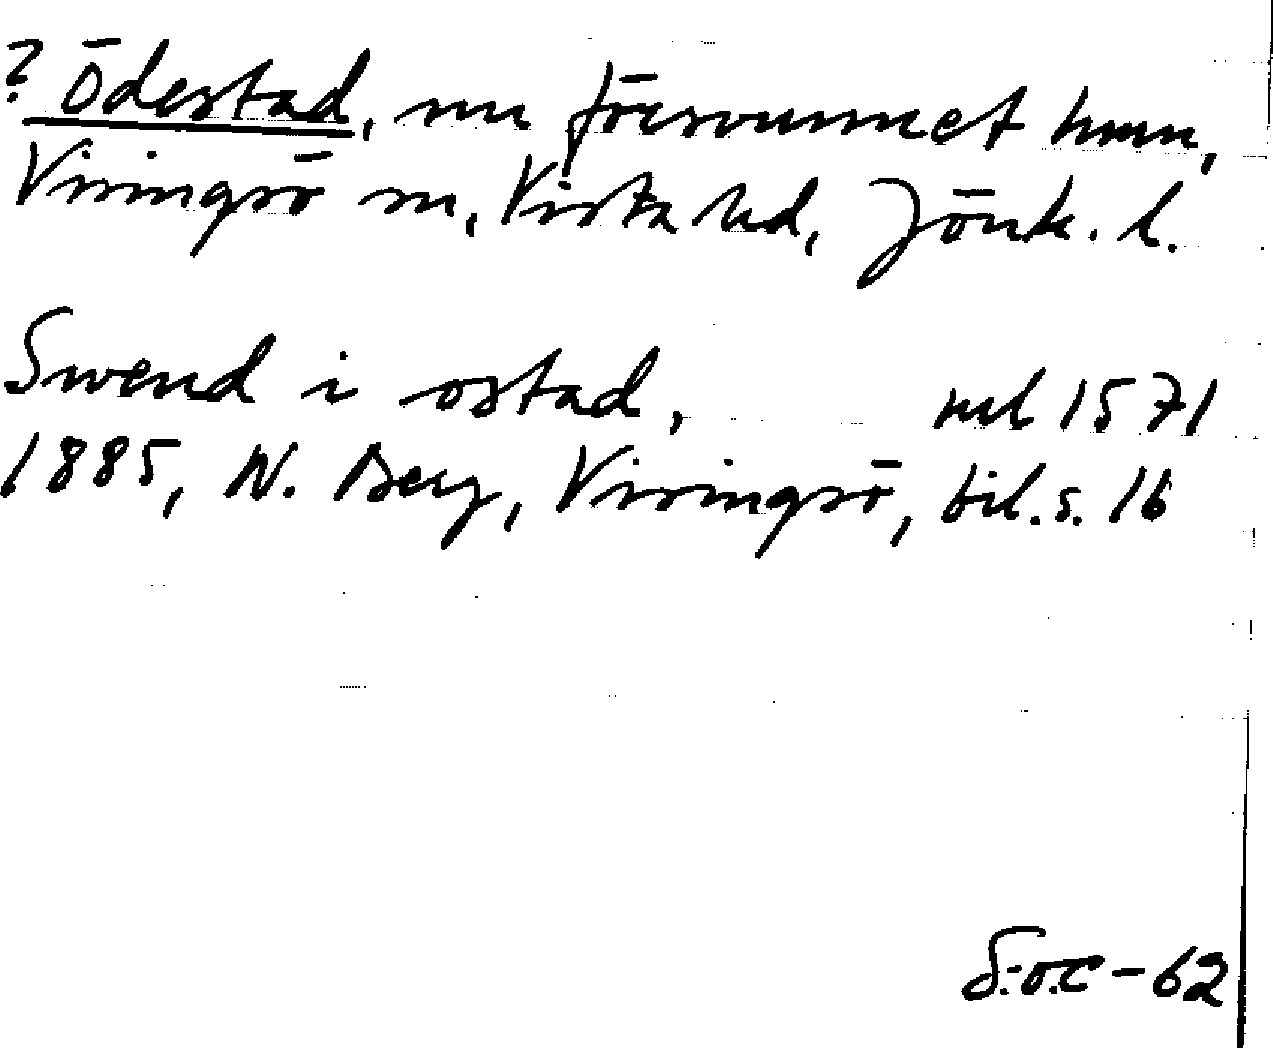 ? Ödestad, nu försvunnet hmn,
Visingsö sn, Vista hd, Jönk. l.
Swend i ostad, ml 1571
1885, W. Berg, Visingsö, bil. s. 16
S.O.C-62